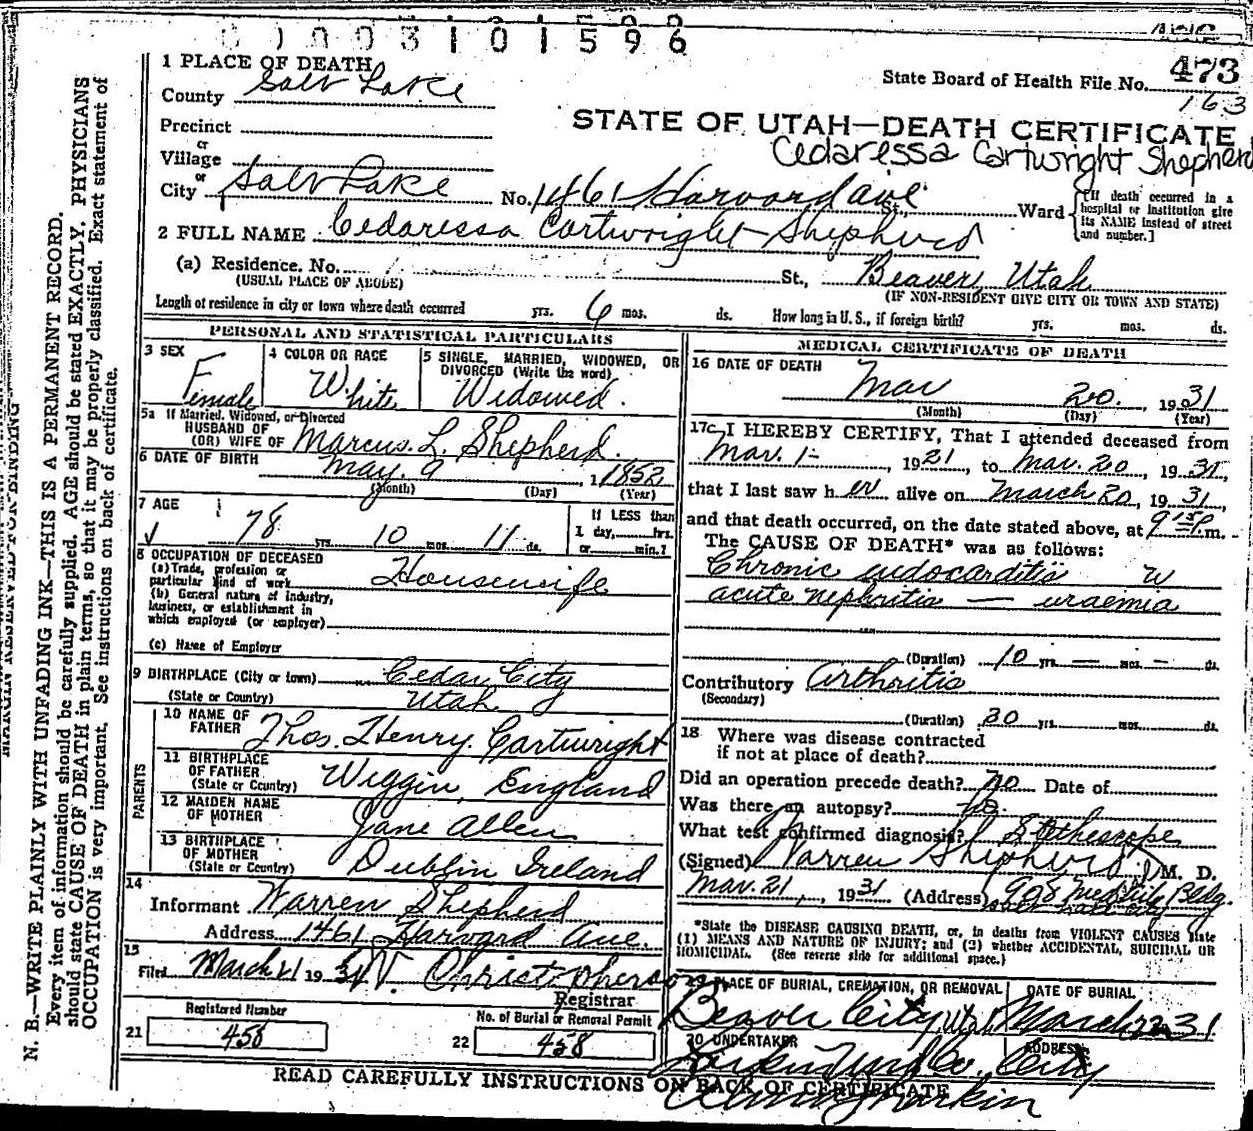 0003101596
1 PLACE OF DEATH
State Board of Health File No. 473
163
County Salt Lake
STATE OF UTAH—DEATH CERTIFICATE
Precinct
or
Village
Cedaressa Cartwright Shepherd
or
City Salt Lake No. 1461 Harvard ave St., Ward
[If death occurred in a hospital or institution give its NAME instead of street and number.]
2 FULL NAME Cedaressa Cartwright Shepherd
(a) Residence. No. St., Beaver, Utah
(USUAL PLACE OF ABODE) (IF NON-RESIDENT GIVE CITY OR TOWN AND STATE)
Length of residence in city or town where death occurred yrs. 6 mos. ds. How long in U. S., if foreign birth? yrs. mos. ds.
PERSONAL AND STATISTICAL PARTICULARS
3 SEX
Female
4 COLOR OR RACE
White
5 SINGLE, MARRIED, WIDOWED, OR
DIVORCED (Write the word)
Widowed.
5a If Married, Widowed, or Divorced
HUSBAND OF
(OR) WIFE OF Marcus. L. Shepherd.
6 DATE OF BIRTH May. 9, 1852
(Month) (Day) (Year)
7 AGE
78 yrs. 10 mos. 11 ds.
If LESS than
1 day, hrs.
or min.?
8 OCCUPATION OF DECEASED
(a) Trade, profession or
particular kind of work Housewife
(b) General nature of industry,
business, or establishment in
which employed (or employer)
(c) Name of Employer
9 BIRTHPLACE (City or town) Cedar City
(State or Country) Utah
PARENTS
10 NAME OF
FATHER Thos. Henry. Cartwright
11 BIRTHPLACE
OF FATHER
(State or Country) Wiggin, England
12 MAIDEN NAME
OF MOTHER Jane Allen
13 BIRTHPLACE
OF MOTHER
(State or Country) Dublin Ireland
14
Informant Warren Shepherd
Address 1461 Harvard Ave.
15
Filed March 21 1931 Christopherson
Registrar
Registered Number
21 458
No. of Burial or Removal Permit
22 458
MEDICAL CERTIFICATE OF DEATH
16 DATE OF DEATH
Mar 20, 1931
(Month) (Day) (Year)
17 I HEREBY CERTIFY, That I attended deceased from
Mar. 1-, 1921, to Mar. 20, 1931,
that I last saw her alive on March 20, 1931,
and that death occurred, on the date stated above, at 9 15 P.m.
The CAUSE OF DEATH* was as follows:
Chronic endocarditis
acute nephritis — uraemia
(Duration) 10 yrs. — mos. — ds.
Contributory Arthritis
(Secondary)
(Duration) 20 yrs. mos. ds.
18 Where was disease contracted
if not at place of death?
Did an operation precede death? no Date of
Was there an autopsy? no.
What test confirmed diagnosis? Stethescope
(Signed) Warren Shepherd, M. D.
Mar. 21, 1931 (Address) Bldg.
Salt Lake City
*State the DISEASE CAUSING DEATH, or, in deaths from VIOLENT CAUSES state
(1) MEANS AND NATURE OF INJURY; and (2) whether ACCIDENTAL, SUICIDAL OR
HOMICIDAL. (See reverse side for additional space.)
PLACE OF BURIAL, CREMATION, OR REMOVAL
Beaver City Utah
DATE OF BURIAL
March 22 31
20 UNDERTAKER
Larkin Und Co.
ADDRESS
City
Larkin
READ CAREFULLY INSTRUCTIONS ON BACK OF CERTIFICATE
MARGIN RESERVED FOR BINDING
N. B.—WRITE PLAINLY WITH UNFADING INK—THIS IS A PERMANENT RECORD.
Every item of information should be carefully supplied. AGE should be stated EXACTLY. PHYSICIANS
should state CAUSE OF DEATH in plain terms, so that it may be properly classified. Exact statement of
OCCUPATION is very important. See instructions on back of certificate.